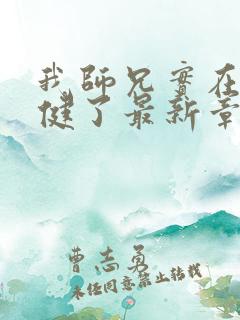 我师兄实在
健了最新章
曹志勇
未经同意禁止转载